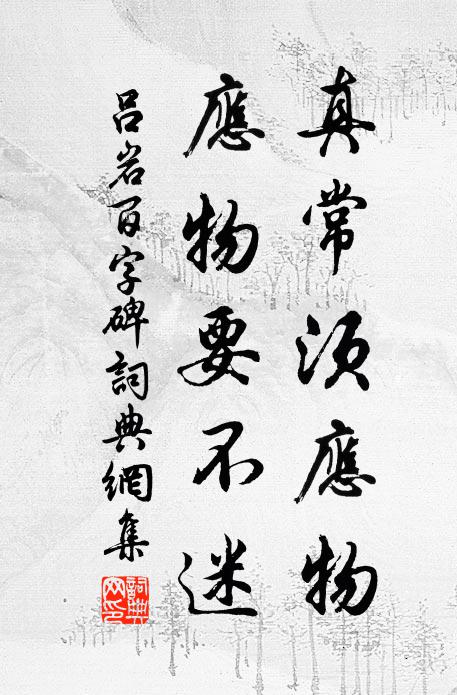 真常須應物
應物要不迷
吕岩百字碑詞典網集